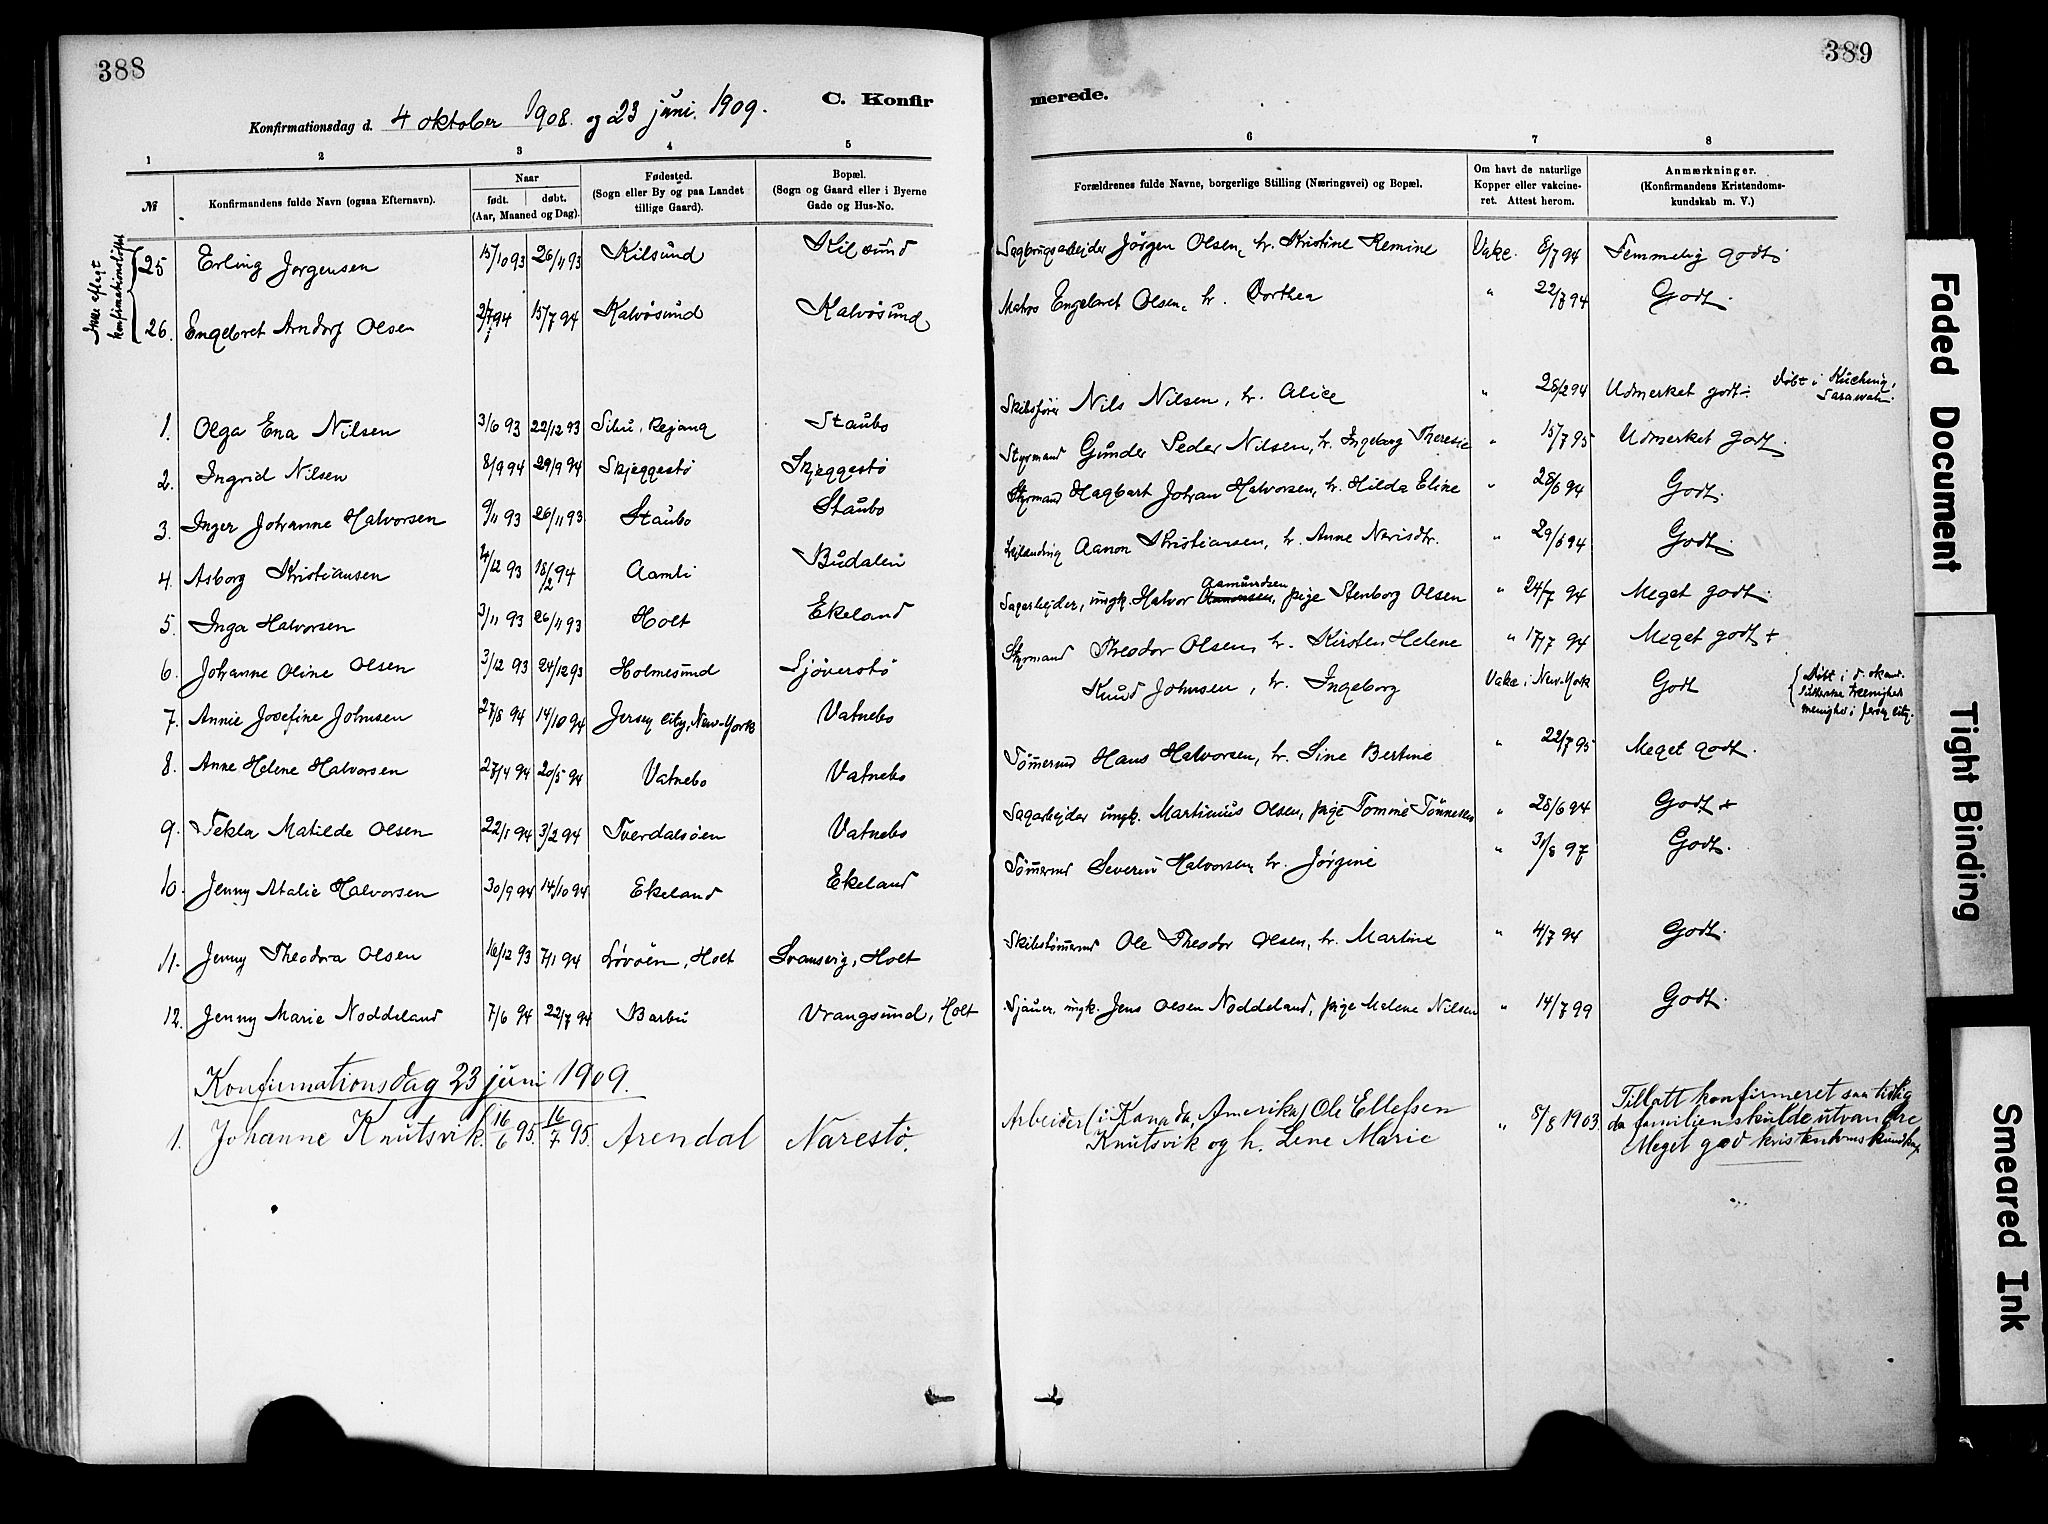 388
389
C. Konfir
merede.
Konfirmationsdag d. 4 oktober 1908. og 23 juni. 1909.
1 2 3 4 5 6 7 8
№
Konfirmandens fulde Navn (ogsaa Efternavn).
Naar
født. døbt.
(Aar, Maaned og Dag).
Fødested.
(Sogn eller By og paa Landet
tillige Gaard).
Bopæl.
(Sogn og Gaard eller i Byerne
Gade og Hus-No.
Forældrenes fulde Navne, borgerlige Stilling (Næringsvei) og Bopæl.
Om havt de naturlige
Kopper eller vakcine-
ret. Attest herom.
Anmærkninger.
(Konfirmandens Kristendoms-
kundskab m. V.)
Ikke aflagt
konfirmationsløftet
25 Erling Jørgensen 15/10 93 26/11 93 Kilsund Kilsund Sagbrugsarbejder Jörgen Olsen, h. Kristine Remine Vakc. 8/7 94 Temmelig godt.
26. Engebret Arndorf Olsen 2/7 94 15/7 94 Kalvøsund Kalvøsund Matros Engebret Olsen, h. Dorthea " 22/7 94 Godt.
1. Olga Ena Nilsen 3/6 93 22/12 93 Sibu, Rejang Staubo Skibsfører Nils Nilsen, h. Alice " 28/2 94 Udmerket godt. Døbt i Kuching, Sarawak.
2. Ingrid Nilsen 8/9 94 29/9 94 Skjeggestø Skjeggestø Styrmand Gunder Peder Nilsen, h. Ingeborg Theresie " 15/7 95 Udmerket godt.
3. Inger Johanne Halvorsen 9/11 93 26/11 93 Staubo Staubo Styrmand Hagbart Johan Halvorsen, h. Hilda Eline " 28/6 94 Godt.
4. Asborg Kristiansen 4/12 93 18/2 94 Aamli Budalen Aanon Kristiansen, h. Anne " 29/6 94 Godt.
5. Inga Halvorsen 3/11 93 26/11 93 Holt Ekeland Sagarbejder, ungk. Halvor Aamundsen, pige Stenborg Olsen " 24/7 94 Meget godt.
6. Johanne Oline Olsen 3/12 93 24/12 93 Holmesund Sjøverstø Styrmand Theodor Olsen, h. Kirsten Helene " 17/7 94 Meget godt +
7. Annie Josefine Johnsen 27/8 94 14/10 94 Jersey City, New-York Vatnebo Knud Johnsen, h. Ingeborg Vakc. i New-York Godt Døbt i d. skand. lutherske menighed i Jersey City.
8. Anne Helene Halvorsen 27/4 94 20/5 94 Vatnebo Vatnebo Tømmermd Hans Halvorsen, h. Sine Bertine " 22/7 95 Meget godt.
9. Tekla Matilde Olsen 22/1 94 3/2 94 Tverdalsøen Vatnebo Sagarbejder ungk. Martinius Olsen, pige Tomine Tønnesen " 28/6 94 Godt +
10. Jenny Atalie Halvorsen 30/9 94 14/10 94 Ekeland Ekeland Tømmermd Severin Halvorsen, h. Jørgine " 31/8 97 Godt.
11. Jenny Theodora Olsen 16/12 93 7/1 94 Løvøen, Holt Svansvig, Holt Skibstømmermd Ole Theodor Olsen, h. Martine " 4/7 94 Godt.
12. Jenny Marie Noddeland 7/6 94 22/7 94 Barbu Vrangsund, Holt Sjauer, ungk. Jens Olsen Noddeland, pige Helene Nilsen " 14/7 99 Godt.
Konfirmationsdag 23 juni 1909.
1. Johanne Knutsvik. 16/6 95. 16/7 95. Arendal Narestø. Arbeider (i Kanada, Amerika) Ole Ellefsen
Knutsvik og h. Lene Marie " 5/8 1903.
Tillatt konfirmeret saa tidlig
da familien skulde utvandre
Meget god kristendomskundskap
Faded Document
Tight Binding
Smeared Ink